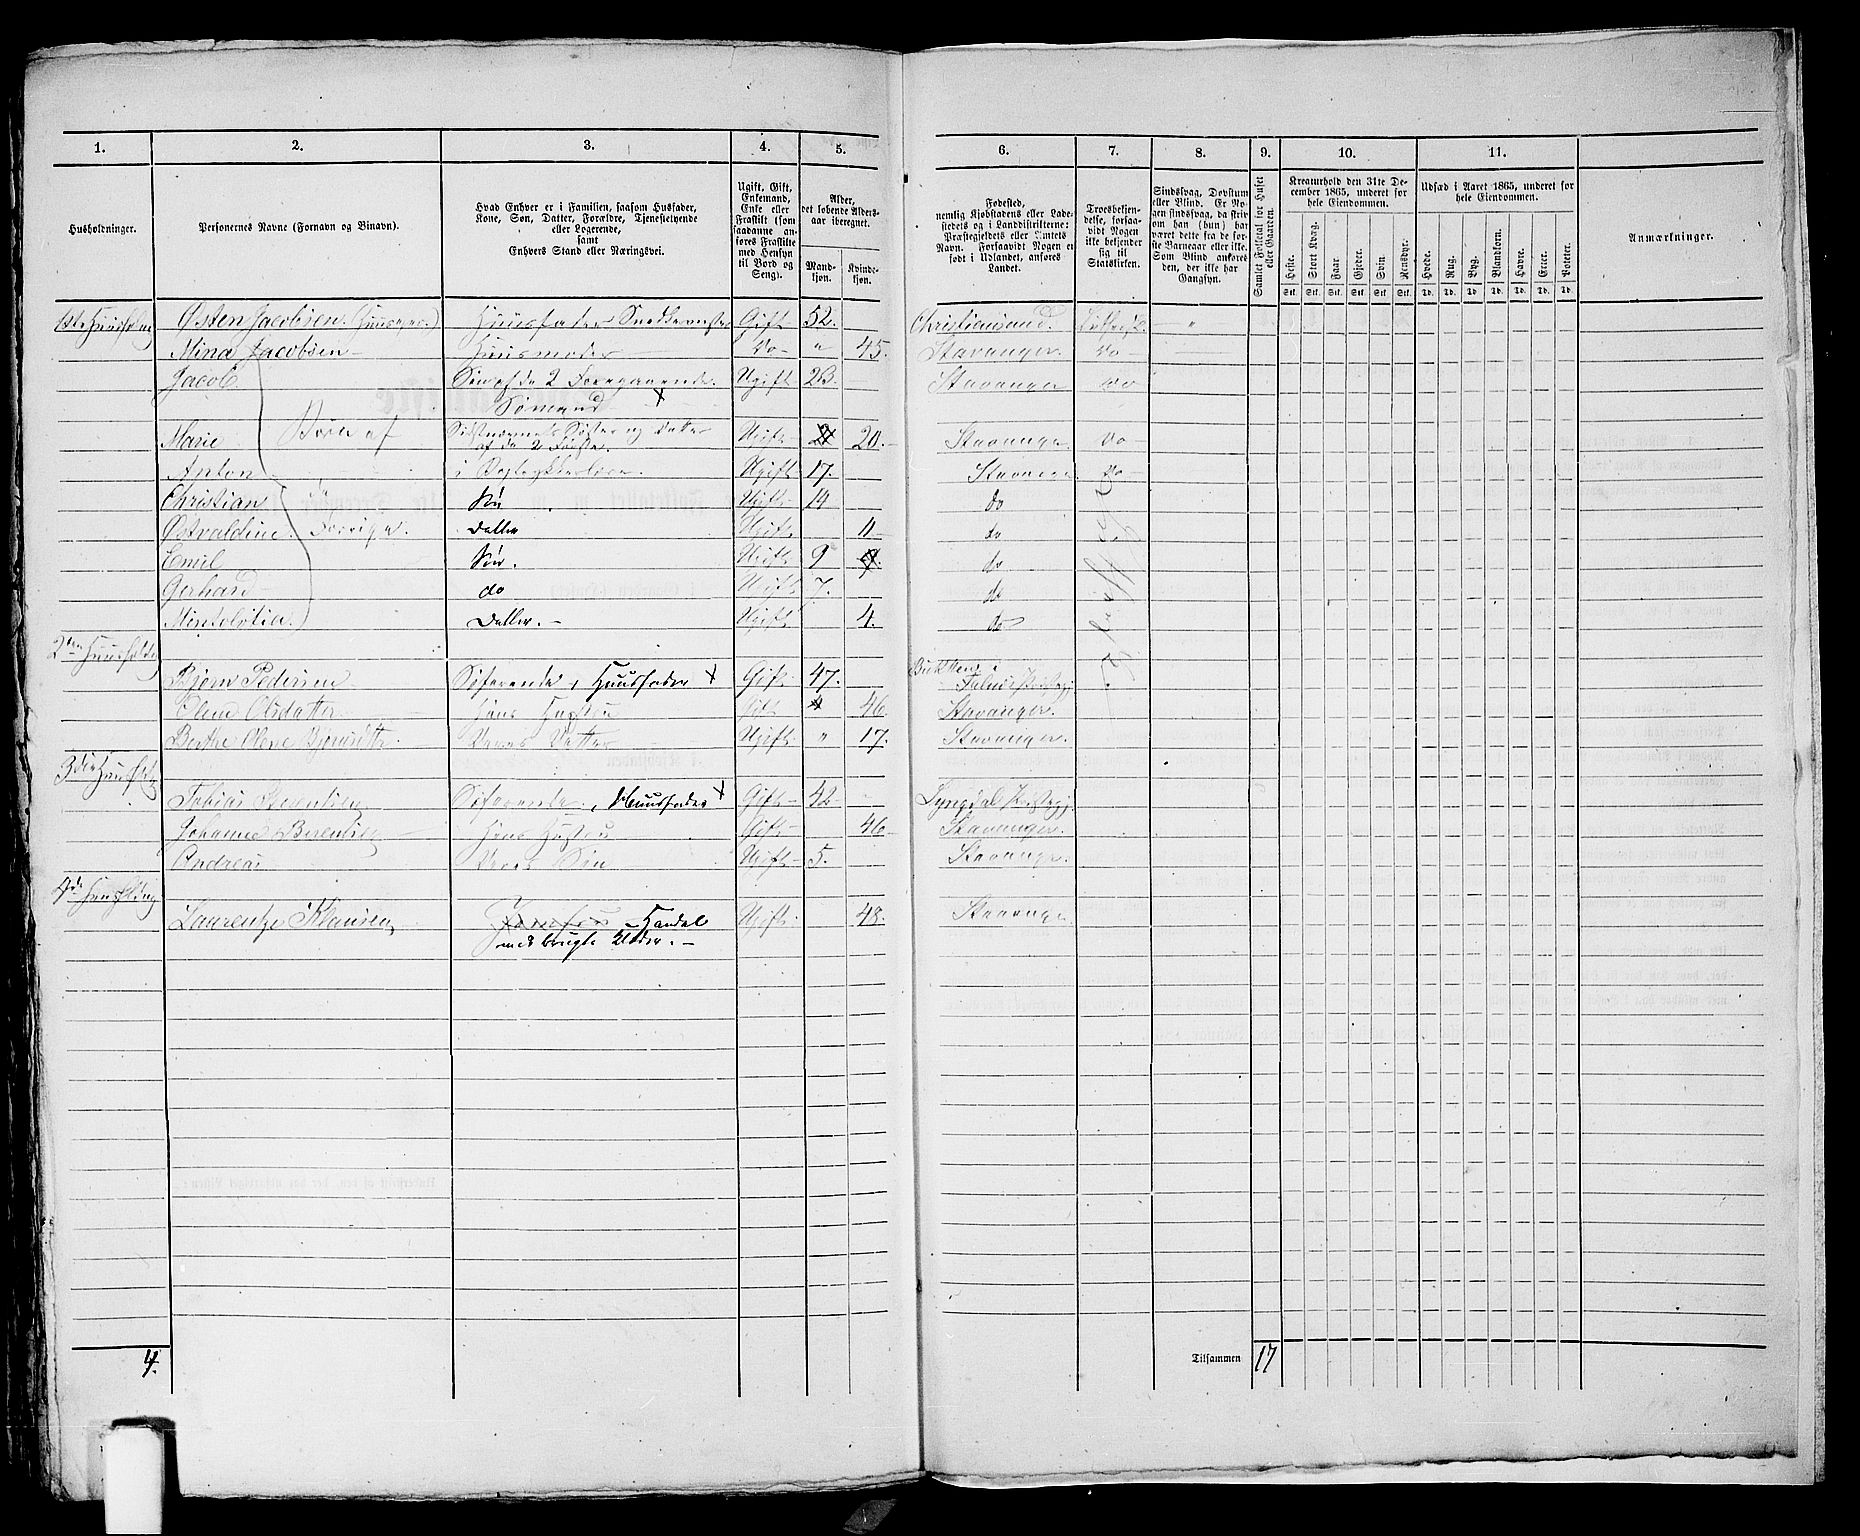 1. 2. 3. 4. 5. 6. 7. 8. 9. 10. 11.
Husholdninger.
Personernes Navne (Fornavn og Binavn).
Hvad Enhver er i Familien, saasom Husfader,
Kone, Søn, Datter, Forældre, Tjenestetyende
eller Logerende,
samt
Enhvers Stand eller Næringsvei.
Ugift, Gift,
Enkemand,
Enke eller
Fraskilt (som
saadanne an-
føres Fraskilte
med Hensyn
til Bord og
Seng).
Alder,
det løbende Alders-
aar iberegnet.
Mand-
kjøn.
Kvinde-
kjøn.
Fødested,
nemlig Kjøbstadens eller Lade-
stedets og i Landdistrikterne:
Præstegjeldets eller Amtets
Navn. Forsaavidt Nogen er
født i Udlandet, anføres
Landet.
Troesbekjen-
delse, forsaa-
vidt Nogen
ikke bekjender
sig til
Statskirken.
Sindssvag, Døvstum
eller Blind. Er No-
gen sindssvag, da skriv
om han (hun) har
været dette fra de før-
ste Barneaar eller ikke.
Som Blind anføres
den, der ikke har
Gangsyn.
Samlet Folketal for Huset
eller Gaarden.
Kreaturhold den 31te De-
cember 1865, underet for
hele Eiendommen.
Heste. Stort Kvæg. Faar. Gjeder. Svin. Rensdyr.
Stk. Stk. Stk. Stk. Stk. Stk.
Udsæd i Aaret 1865, underet for
hele Eiendommen.
Hvede. Rug. Byg. Blandkorn. Havre. Erter. Poteter.
Td. Td. Td. Td. Td. Td. Td.
Anmærkninger.
Østen Jacobsen Huusfader Gift 52. Christiansand.
Mina Jacobsen Huusmoder Do " 45. Stavanger. do
Jacob Søn af de 2 Foregaaende. Ugift 23. Stavanger do
Sømand X
Marie Børn af Datter af de 2 Første. Ugift 20. Stavanger do
Anton Ugift 17. Stavanger do
Christian Søn Ugift 14 do
Østvaldine Datter Ugift 11 do
Emil Søn. Ugift 9 do
Gerhard do Ugift 7. do
Datter. Ugift 4. do
Bjørn Pedersen Søfarende, Huusfader X Gift 47.
Elene Olsdatter Hans Hustru Gift 46 Stavanger.
Berthe Olene Deres Datter Ugift " 17. Stavanger.
Tobias Søfarende, Huusfader X Gift 42 Lyngdal
Johanne Berentsen Hans Hustru Gift 46 Stavanger.
Andreas Deres Søn Ugift 5. Stavanger.
Laurentze Klausen Handel Ugift 48. Stavanger
med brugte Klæder.
4. Tilsammen 17